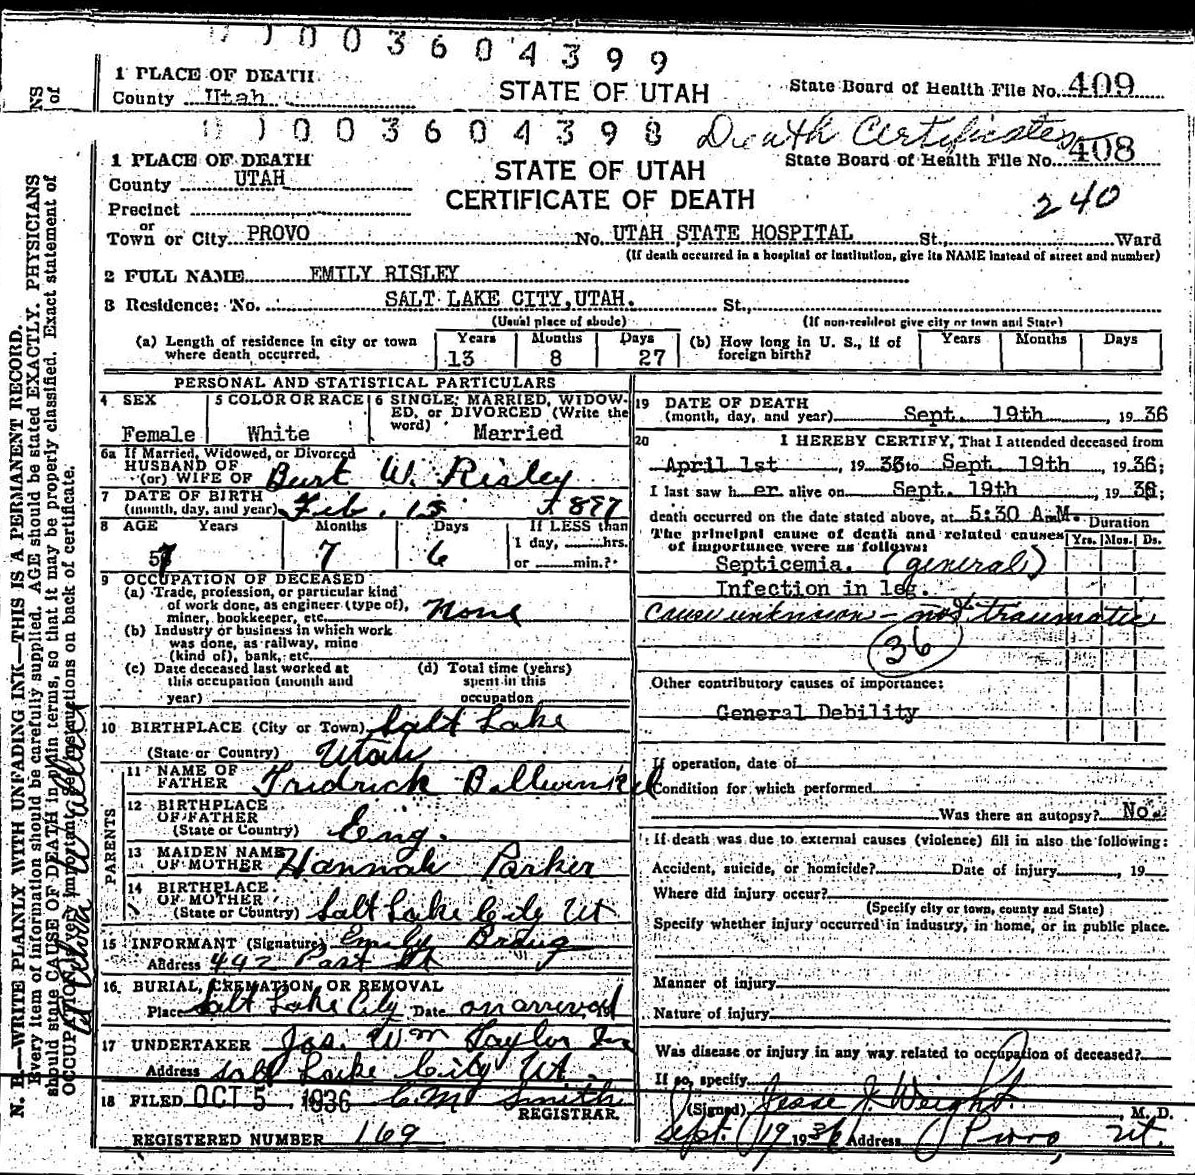 0 0 0 3 6 0 4 3 9 9
1 PLACE OF DEATH
County Utah
STATE OF UTAH
State Board of Health File No. 409
0 0 0 3 6 0 4 3 9 8 Death Certificates
1 PLACE OF DEATH
County UTAH
STATE OF UTAH
CERTIFICATE OF DEATH
State Board of Health File No. 408
240
Precinct
or
Town or City PROVO No. UTAH STATE HOSPITAL St., Ward
(If death occurred in a hospital or institution, give its NAME instead of street and number)
2 FULL NAME EMILY RISLEY
3 Residence: No. SALT LAKE CITY, UTAH. St.,
(Usual place of abode) (If non-resident give city or town and State)
(a) Length of residence in city or town where death occurred. Years 13 Months 8 Days 27
(b) How long in U. S., if of foreign birth? Years Months Days
PERSONAL AND STATISTICAL PARTICULARS
4 SEX Female
5 COLOR OR RACE White
6 SINGLE, MARRIED, WIDOWED, or DIVORCED (Write the word) Married
6a If Married, Widowed, or Divorced
HUSBAND OF
(or) WIFE OF Burt W. Risley
7 DATE OF BIRTH
(month, day, and year) Feb. 13
8 AGE Years Months Days If LESS than
7 6 1 day, hrs.
or min.?
9 OCCUPATION OF DECEASED
(a) Trade, profession, or particular kind
of work done, as engineer (type of),
miner, bookkeeper, etc. None
(b) Industry or business in which work
was done, as railway, mine
(kind of), bank, etc.
(c) Date deceased last worked at
this occupation (month and
year)
(d) Total time (yehrs)
spent in this
occupation
10 BIRTHPLACE (City or Town) Salt Lake
(State or Country) Utah
PARENTS
11 NAME OF
FATHER Fridrick
12 BIRTHPLACE
OF FATHER
(State or Country) Eng.
13 MAIDEN NAME
OF MOTHER Hannah Parker
14 BIRTHPLACE
OF MOTHER
(State or Country) Salt Lake City Ut
15 INFORMANT (Signature) Emily
Address 442
16 BURIAL, CREMATION, OR REMOVAL
Place Salt Lake City Date on arrival
17 UNDERTAKER Jos. Wm Taylor
Address Salt Lake City Ut.
18 FILED OCT 5 1936 C.M. Smith
REGISTRAR.
REGISTERED NUMBER 169
19 DATE OF DEATH
(month, day, and year) Sept. 19th 1936
20 I HEREBY CERTIFY, That I attended deceased from
April 1st , 19 to Sept. 19th , 1936;
I last saw h er alive on Sept. 19th , 1936;
death occurred on the date stated above, at 5:30 A.M.
Duration
The principal cause of death and related causes
of importance were as follows: Yrs. Mos. Ds.
Septicemia. (general)
Infection in leg.
Cause unknown - not traumatic
36
Other contributory causes of importance:
General Debility
If operation, date of
Condition for which performed
Was there an autopsy? No.
If death was due to external causes (violence) fill in also the following:
Accident, suicide, or homicide? Date of injury , 19
Where did injury occur?
(Specify city or town, county and State)
Specify whether injury occurred in industry, in home, or in public place.
Manner of injury
Nature of injury
Was disease or injury in any way related to occupation of deceased?
If so, specify
(Signed) Jesse J. Weight. , M. D.
Sept. 19 1936 Address Provo, Ut.
N. B.—WRITE PLAINLY WITH UNFADING INK—THIS IS A PERMANENT RECORD.
Every item of information should be carefully supplied. AGE should be stated EXACTLY. PHYSICIANS
should state CAUSE OF DEATH in plain terms, so that it may be properly classified. Exact statement of
OCCUPATION is very important. See instructions on back of certificate.
NS
of